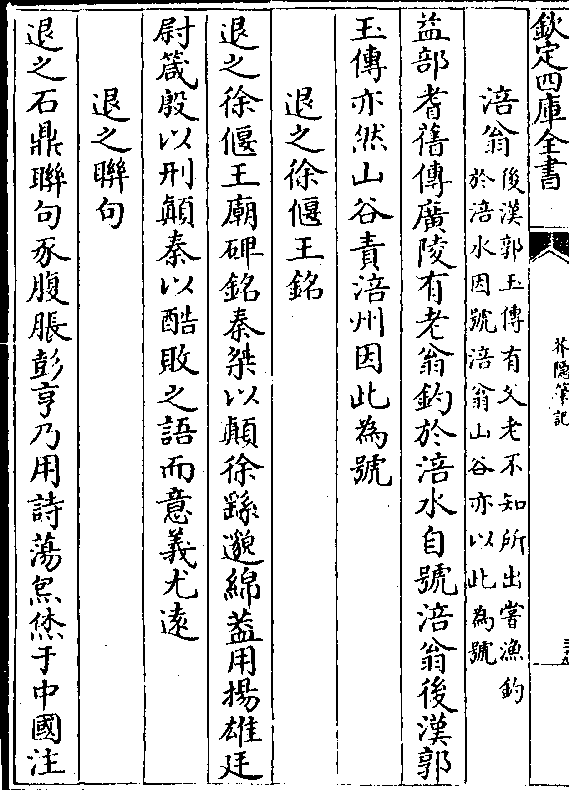 欽定四庫全書
芥隱筆記
涪翁後漢郭玉傳有父老不知所出嘗漁釣
於涪水因號涪翁山谷亦以此為號
益部耆舊傳廣陵有老翁釣於涪水自號涪翁後漢郭
玉傳亦然山谷責涪州因此為號
退之徐偃王銘
退之徐偃王廟碑銘秦桀以顛徐繇遜綿葢用揚雄廷
尉箴殷以刑顛秦以酷敗之語而意義尤逺
退之聨句
退之石鼎聨句豕腹脹彭亨乃用詩蕩炰烋于中國注